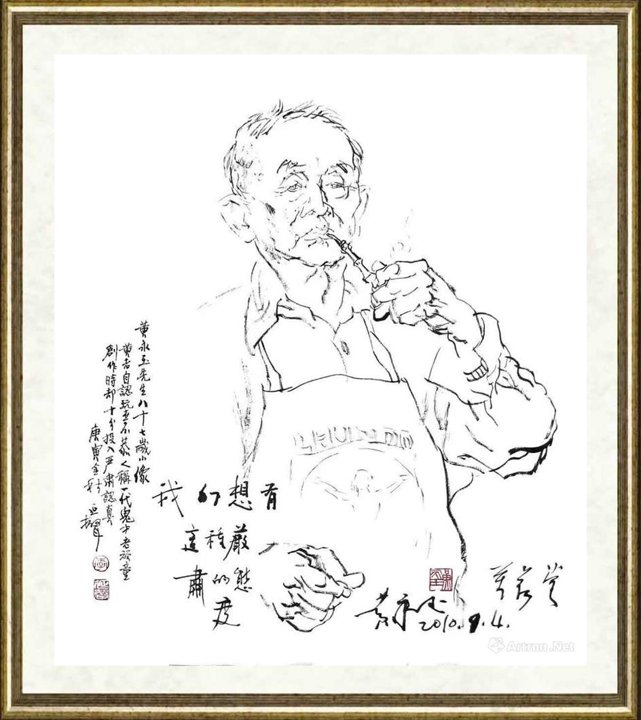 黄永玉先生八十七歲小像
黄老自認玩世不恭人稱一代鬼才老頑童
創作時却十分投入严肅認真
庚寅金秋
我 想有
這種嚴
肅的態
度
黄永玉
2010.9.4.
Artron.Net